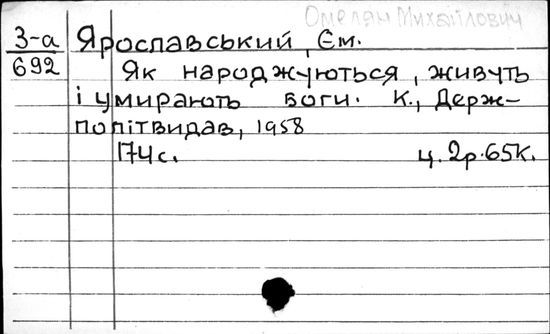 Омелян Михайлович
З-а Ярославський, Єм.
692 Як народжуються, живуть
і умирають боги. К., Держ-
політвидав, 1958
174 с. ц. 2р. 65к.